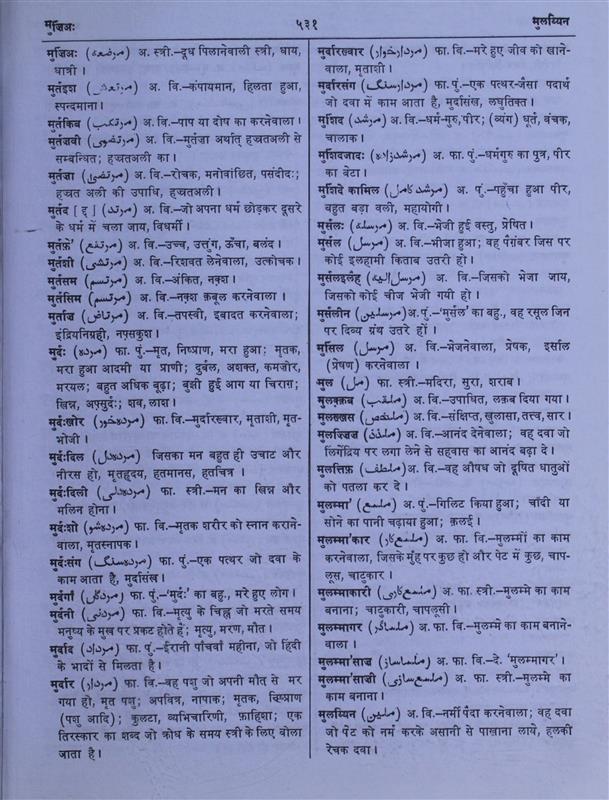 मुर्ज़िअः
५३१
मुलय्यिन
मुर्ज़िअः (مرضعہ) अ. स्त्री.–दूध पिलानेवाली स्त्री, धाय,
धात्री।
मुर्तइश (مرتعش) अ. वि.–कंपायमान, हिलता हुआ,
स्पन्दमाना।
मुर्तकिब (مرتکب) अ. वि.–पाप या दोष का करनेवाला।
मुर्तज़वी (مرتضوی) अ. वि.–मुर्तज़ा अर्थात् हज़्रतअली से
सम्बन्धित; हज़्रतअली का।
मुर्तज़ा (مرتضیٰ) अ. वि.–रोचक, मनोवांछित, पसंदीदः;
हज़्रत अली की उपाधि, हज़्रतअली।
मुर्तद [ द्द ] (مرتد) अ. वि.–जो अपना धर्म छोड़कर दूसरे
के धर्म में चला जाय, विधर्मी।
मुर्तफ़े' (مرتفع) अ. वि.–उच्च, उत्तुंग, ऊँचा, बलंद।
मुर्तशी (مرتشی) अ. वि.–रिशवत लेनेवाला, उत्कोचक।
मुर्तसम (مرتسم) अ. वि.–अंकित, नक़्श।
मुर्तसिम (مرتسم) अ. वि.–नक़्श क़बूल करनेवाला।
मुर्ताज़ (مرتاض) अ. वि.–तपस्वी, इबादत करनेवाला;
इंद्रियनिग्रही, नफ़्सकुश।
मुर्दः (مردہ) फा. पुं.–मृत, निष्प्राण, मरा हुआ; मृतक,
मरा हुआ आदमी या प्राणी; दुर्बल, अशक्त, कमज़ोर,
मरयल; बहुत अधिक बूढ़ा; बुझी हुई आग या चिराग़;
खिन्न, अफ़्सुर्दः; शव, लाश।
मुर्दःख़ोर (مردہ خور) फा. वि.–मुर्दारख्वार, मृताशी, मृत-
भोजी।
मुर्दःदिल (مردہ دل) जिसका मन बहुत ही उचाट और
नीरस हो, मृतहृदय, हतमानस, हतचित्र।
मुर्दःदिली (مردہ دلی) फा. स्त्री.–मन का खिन्न और
मलिन होना।
मुर्दःशो (مردہ شو) फा. वि.–मृतक शरीर को स्नान कराने-
वाला, मृतस्नापक।
मुर्दःसंग (مردہ سنگ) फा. पुं.–एक पत्थर जो दवा के
काम आता है, मुर्दासिंख।
मुर्दगाँ (مردگاں) फा. पुं.–'मुर्दः' का बहु., मरे हुए लोग।
मुर्दनी (مردنی) फा. वि.–मृत्यु के चिह्न जो मरते समय
मनुष्य के मुख पर प्रकट होते हैं; मृत्यु, मरण, मौत।
मुर्दाद (مرداد) फा. पुं.–ईरानी पाँचवाँ महीना, जो हिंदी
के भादों से मिलता है।
मुर्दार (مردار) फा. वि.–वह पशु जो अपनी मौत से मर
गया हो, मृत पशु; अपवित्र, नापाक; मृतक, निष्प्राण
(पशु आदि); कुलटा, व्यभिचारिणी, फ़ाहिशा; एक
तिरस्कार का शब्द जो क्रोध के समय स्त्री के लिए बोला
जाता है।
मुर्दारख्वार (مردارخوار) फा. वि.–मरे हुए जीव को खाने-
वाला, मृताशी।
मुर्दारसंग (مردارسنگ) फा. पुं.–एक पत्थर-जैसा पदार्थ
जो दवा में काम आता है, मुर्दासंख, लघुतिक्त।
मुर्शिद (مرشد) अ. वि.–धर्म-गुरु, पीर; (व्यंग) धूर्त, वंचक,
चालाक।
मुर्शिदज़ादः (مرشدزادہ) अ. फा. पुं.–धर्मगुरु का पुत्र, पीर
का बेटा।
मुर्शिदे कामिल (مرشد کامل) अ. पुं.–पहुँचा हुआ पीर,
बहुत बड़ा वली, महायोगी।
मुर्सलः (مرسلہ) अ. वि.–भेजी हुई वस्तु, प्रेषित।
मुर्सल (مرسل) अ. वि.–भीजा हुआ; वह पैग़ंबर जिस पर
कोई इलहामी किताब उतरी हो।
मुर्सलइलैह (مرسل الیہ) अ. वि.–जिसको भेजा जाय,
जिसको कोई चीज भेजी गयी हो।
मुर्सलीन (مرسلین) अ. पुं.–'मुर्सल' का बहु., वह रसूल जिन
पर दिव्य ग्रंथ उतरे हों।
मुर्सिल (مرسل) अ. वि.–भेजनेवाला, प्रेषक, इर्साल
(प्रेषण) करनेवाला।
मुल (مل) फा. स्त्री.–मदिरा, सुरा, शराब।
मुलक़्क़ब (ملقب) अ. वि.–उपाधित, लक़ब दिया गया।
मुलख़्ख़स (ملخص) अ. वि.–संक्षिप्त, खुलासा, तत्त्व, सार।
मुलज़्ज़िज़ (ملذذ) अ. वि.–आनंद देनेवाला; वह दवा जो
लिंगेंद्रिय पर लगा लेने से सहवास का आनंद बढ़ा दे।
मुलत्तिफ़ (ملطف) अ. वि.–वह औषध जो दूषित धातुओं
को पतला कर दे।
मुलम्मा' (ملمع) अ. पुं.–गिलिट किया हुआ; चाँदी या
सोने का पानी चढ़ाया हुआ; क़लई।
मुलम्मा'कार (ملمع کار) अ. फा. वि.–मुलम्मों का काम
करनेवाला, जिसके मुँह पर कुछ हो और पेट में कुछ, चाप-
लूस, चाटुकार।
मुलम्माकारी (ملمع کاری) अ. फा. स्त्री.–मुलम्मे का काम
बनाना; चाटुकारी, चापलूसी।
मुलम्मागर (ملمع گر) अ. फा. वि.–मुलम्मे का काम बनाने-
वाला।
मुलम्मा'साज़ (ملمع ساز) अ. फा. वि.–दे. 'मुलम्मागर'।
मुलम्मा'साज़ी (ملمع سازی) अ. फा. स्त्री.–मुलम्मे का
काम बनाना।
मुलय्यिन (ملین) अ. वि.–नर्मी पैदा करनेवाला; वह दवा
जो पेट को नर्म करके असानी से पाखाना लाये, हलकी
रेचक दवा।